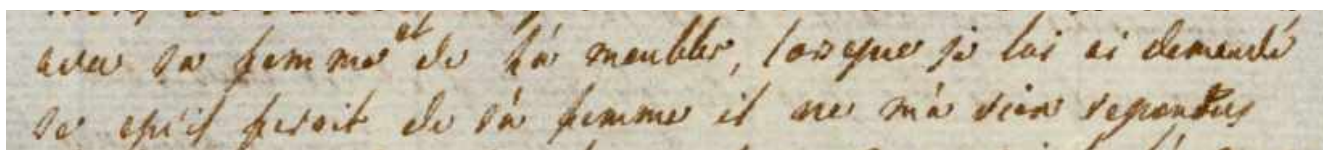 avec sa femme et de sá meubler, lorsque je lui ai demendé
se qu'il feroit de sá femme il ne m'a rien repondus